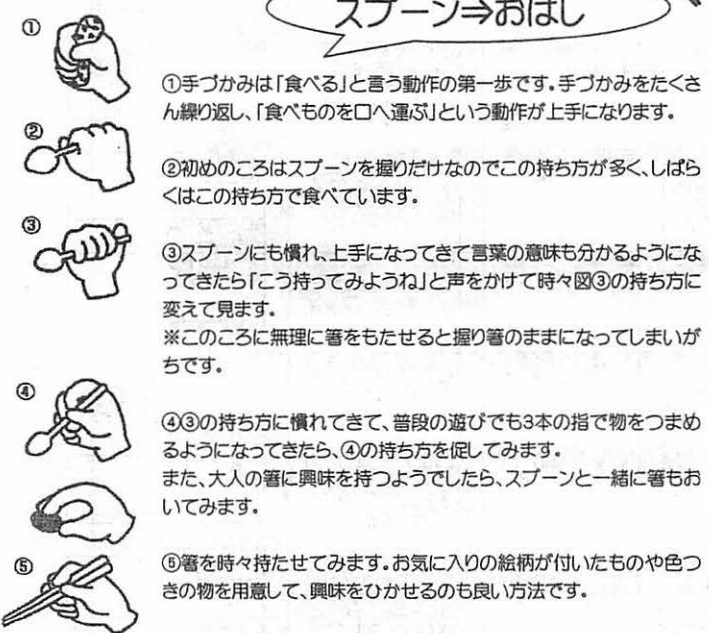 スプーン⇒おはし
①
①手づかみは「食べる」と言う動作の第一歩です。手づかみをたくさ
ん繰り返し、「食べものを口へ運ぶ」という動作が上手になります。
②
②初めのころはスプーンを握りだけなのでこの持ち方が多く、しばら
くはこの持ち方で食べています。
③
③スプーンにも慣れ、上手になってきて言葉の意味も分かるようにな
ってきたら「こう持ってみようね」と声をかけて時々図③の持ち方に
変えて見ます。
※このころに無理に箸をもたせると握り箸のままになってしまいが
ちです。
④
④③の持ち方に慣れてきて、普段の遊びでも3本の指で物をつまめ
るようになってきたら、④の持ち方を促してみます。
また、大人の箸に興味を持つようでしたら、スプーンと一緒に箸もお
いてみます。
⑤
⑤箸を時々持たせてみます。お気に入りの絵柄が付いたものや色つ
きの物を用意して、興味をひかせるのも良い方法です。